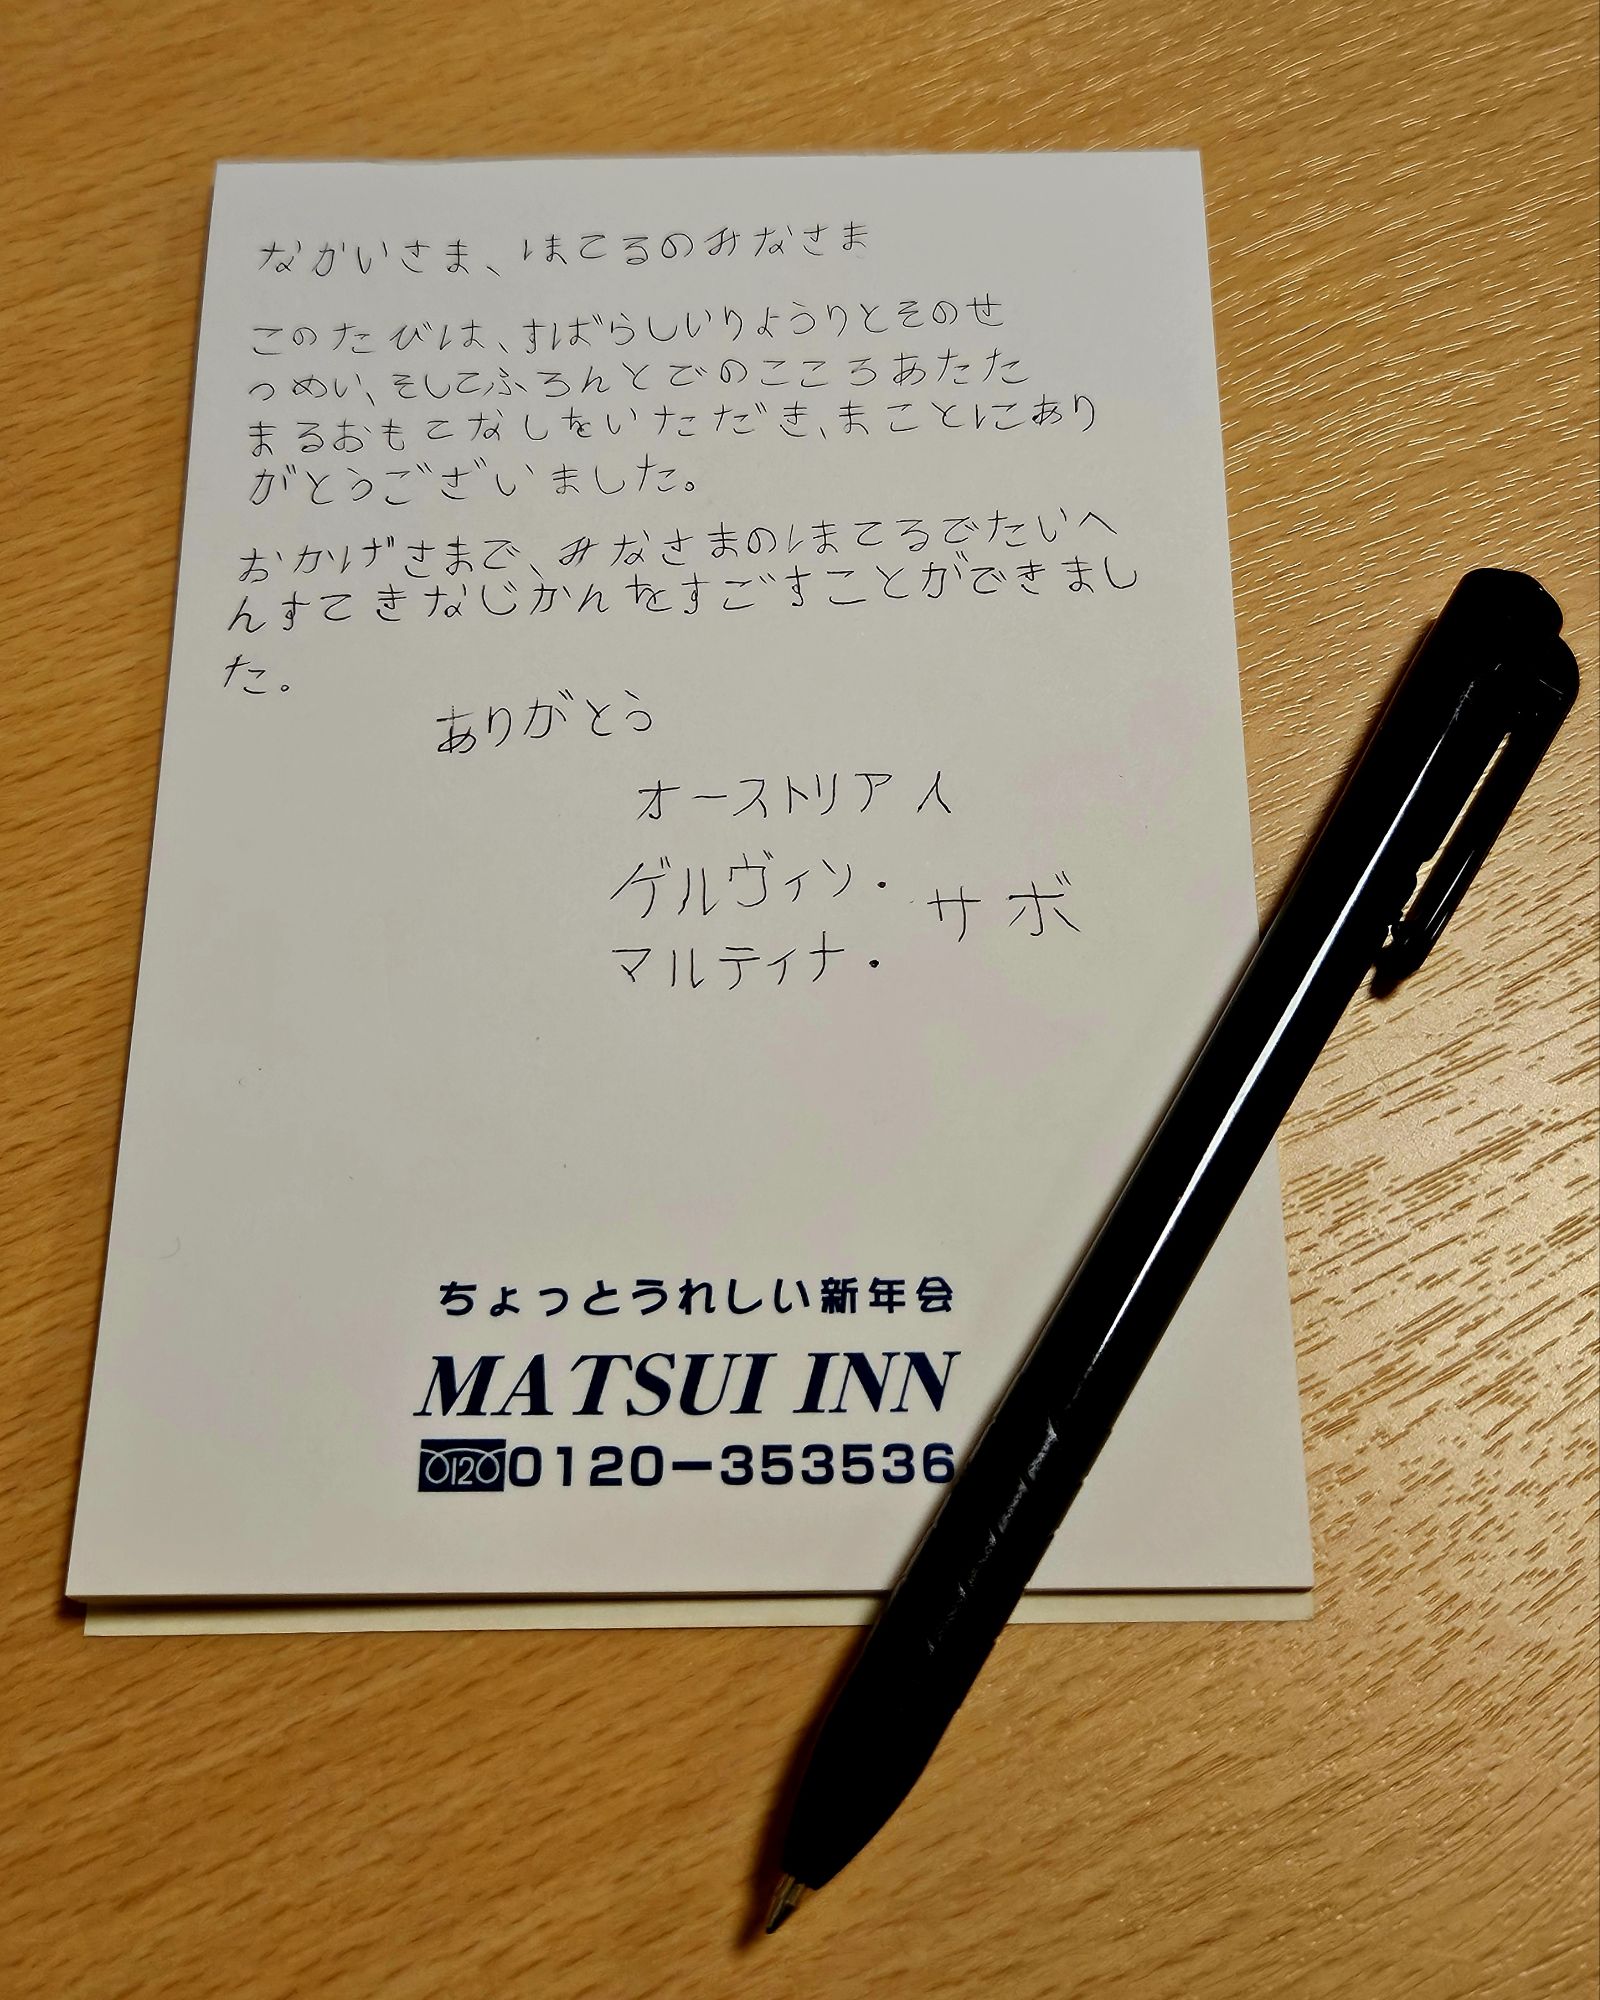 なかいさま、ほてるのみなさま
このたびは、すばらしいりようりとそのせ
つめい、そしてふろんとでのこころあたた
まるおもてなしをいただき、まことにあり
がとうございました。
おかげさまで、みなさまのほてるでたいへ
んすてきなじかんをすごすことができまし
た。
ありがとう
オーストリア人
ゲルヴィン・
サボ
マルティナ・
ちょっとうれしい新年会
MATSUI INN
0120 0120-353536